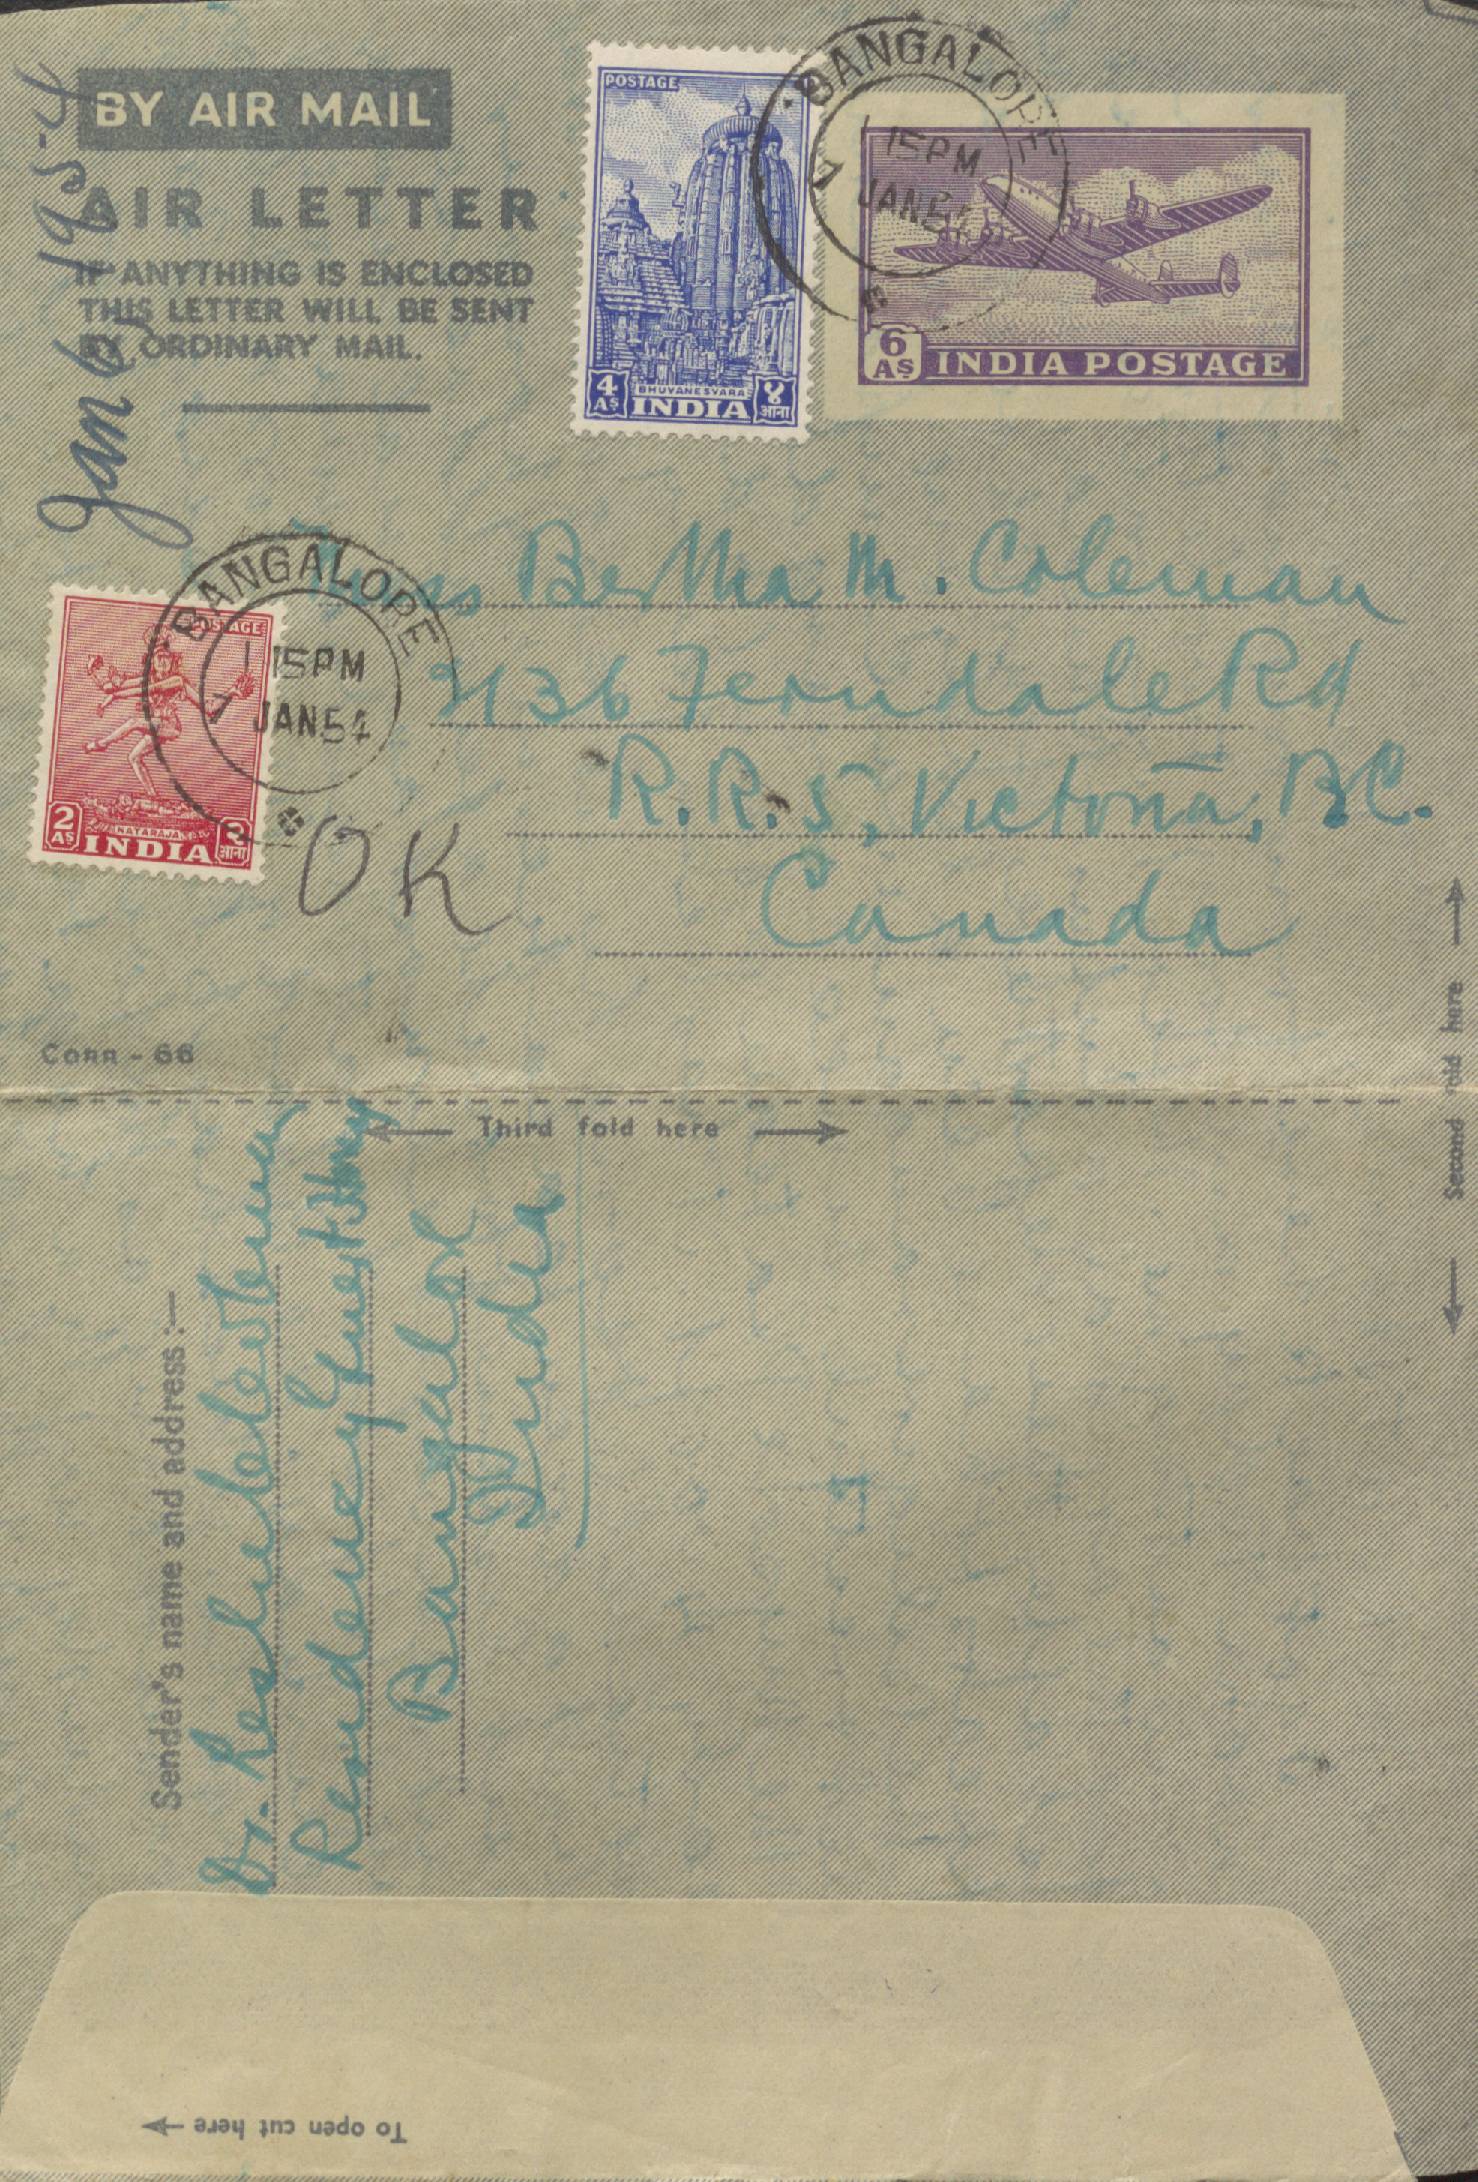 BY AIR MAIL
AIR LETTER
IF ANYTHING IS ENCLOSED
THIS LETTER WILL BE SENT
BY ORDINARY MAIL.
Jan 6, 1954
POSTAGE
4 As
BHUVANESVARA
INDIA
४ आना
BANGALORE
1 15PM
7 JAN.54
6 As INDIA POSTAGE
Bertha M. Coleman
3136 Ferndale Rd
R.R.5, Victoria, B.C.
Canada
POSTAGE
2 As
NATARAJA
INDIA
२ आना
BANGALORE
1 15PM
7 JAN.54
OK
CORR - 66
Third fold here
Second fold here
Sender's name and address :—
Dr.
Residency Guest House
Bangalore
India
To open cut here